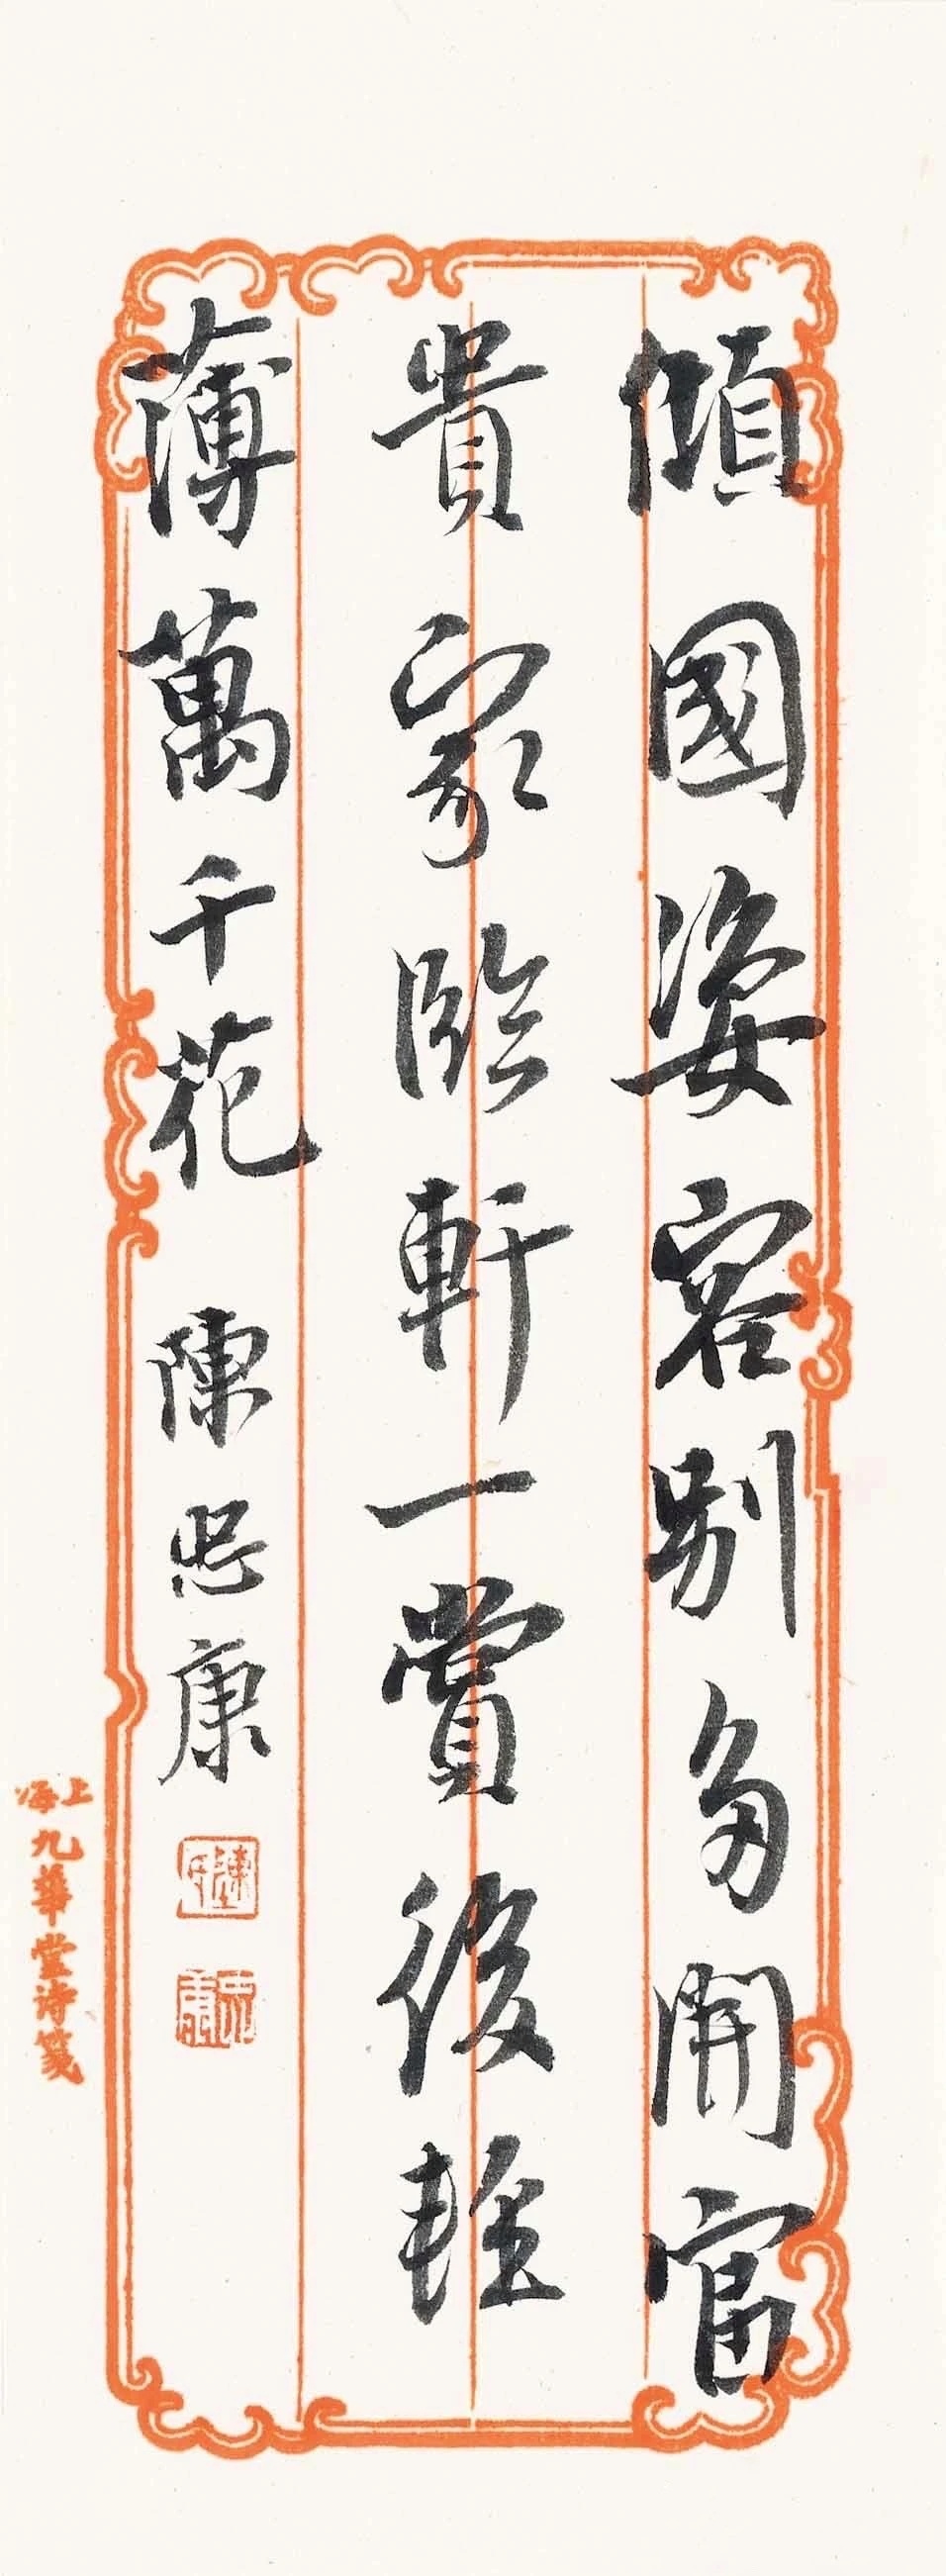 傾國姿容別多開富
貴家臨軒一賞後輕
薄萬千花 陳忠康
上海九華堂詩箋